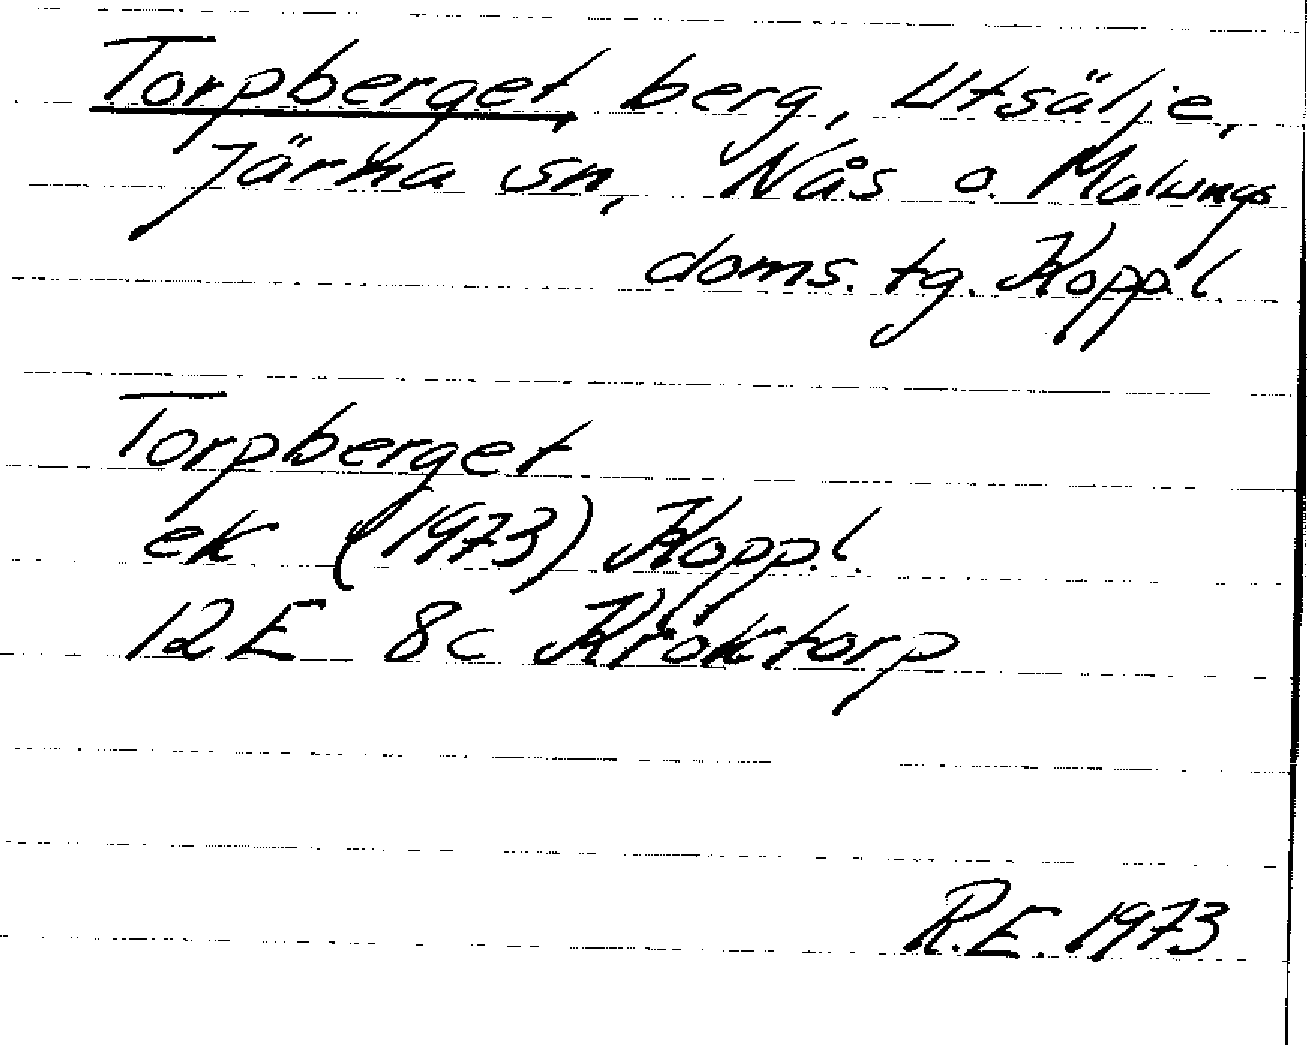 Torpberget, berg, Utsälje,
Järna sn, Nås o. Malungs
doms. tg. Kopp.l.
Torpberget
ek (1973) Kopp.l.
12E 8c Kroktorp
R.E. 1973